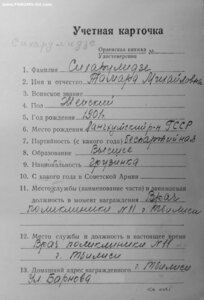 Сихарулидзе
Учетная карточка
Орденская книжка №
Удостоверение
1. Фамилия Сихарулидзе
2. Имя и отчество Тамара Михайловна
3. Воинское звание
4. Пол Женский
5. Год рождения 1901
6. Место рождения р-н ГССР
7. Партийность (с какого года) беспартийная
8. Образование Высшее
9. Национальность грузинка
10. С какого года в Советской Армии
11. Место службы (наименование части) и занимаемая
должность в момент награждения Врач
поликлиники №11 г. Тбилиси
12. Место службы и должность в настоящее время
Врач поликлиники №11
г. Тбилиси
13. Домашний адрес награжденного г. Тбилиси
ул Барнова